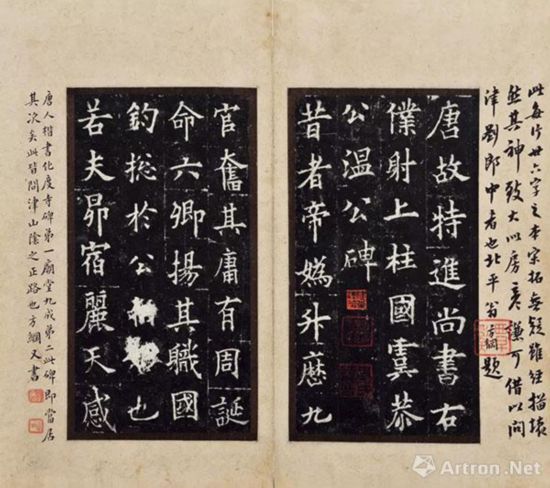 此每片卅六字之本宋拓無疑雖經描
然其神致大似房彦謙可借以問
津劉郎中者也北平翁方綱題
唐故特進尚書右
僕射上柱國虞恭
公温公碑
昔者帝媯升歷九
官奮其庸有周誕
命六卿揚其職國
鈞揔於公也
若夫昴宿麗天感
唐人楷書化度寺碑第一廟堂九成第二此碑即當居
其次矣此皆問津山陰之正路也方綱又書
Artron.Net